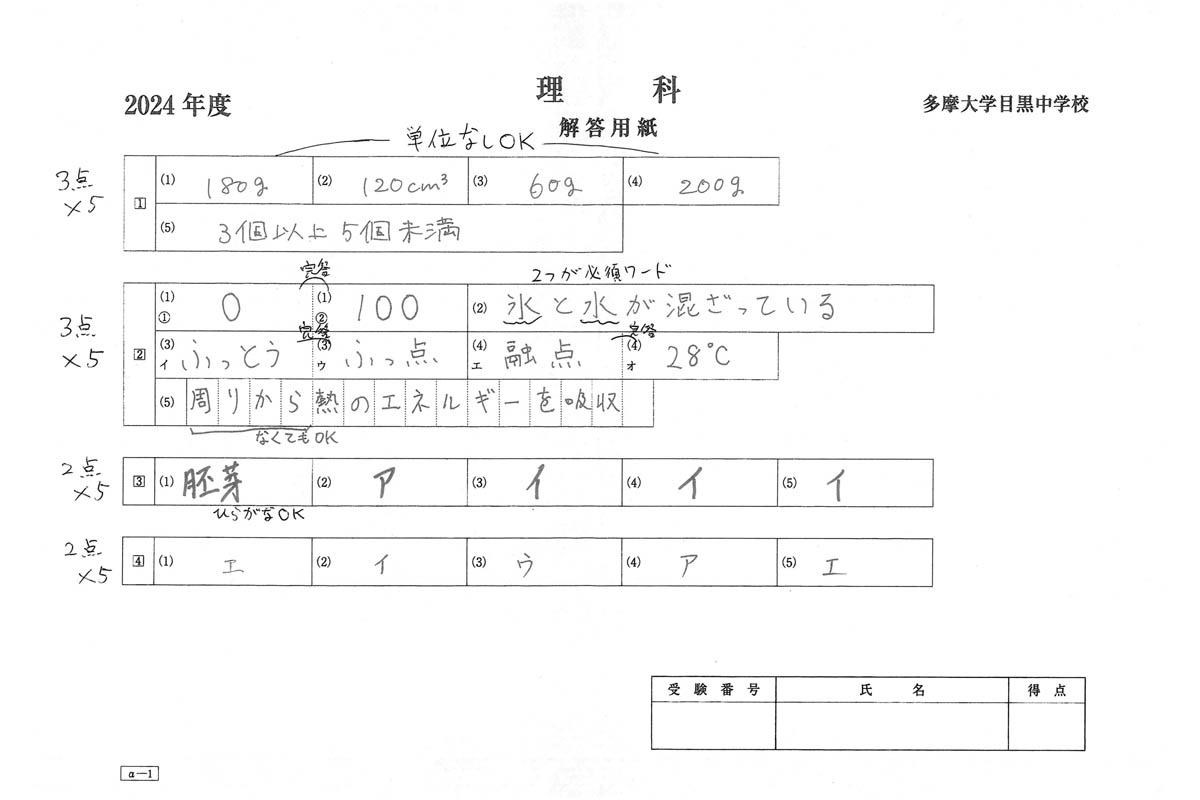 理 科
2024 年度
多摩大学目黒中学校
解答用紙
単位なしOK
3点×5
1 (1) 180g (2) 120cm³ (3) 60g (4) 200g
(5) 3個以上5個未満
完答 2つが必須ワード
3点×5
2 (1)① 0 (1)② 100 (2) 氷と水が混ざっている
完答 完答
(3)イ ふっとう (3)ウ ふっ点 (4)エ 融点 (4)オ 28℃
(5) 周りから熱のエネルギーを吸収
なくてもOK
2点×5
3 (1) 胚芽 (2) ア (3) イ (4) イ (5) イ
ひらがなOK
2点×5
4 (1) エ (2) イ (3) ウ (4) ア (5) エ
受験番号 氏名 得点
α-1